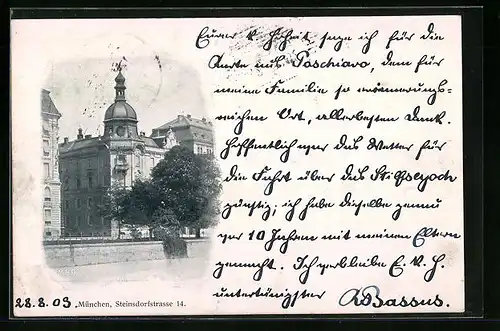 Eurer k. Hoheit sage ich für die
Karte aus Poschiavo, dem für
meine Familie so erinnerungs=
reichen Ort, allerbesten Dank.
Hoffentlich war das Wetter für
die Fahrt über das Stilfserjoch
günstig; ich habe dieselbe genau
vor 10 Jahren mit meinen Eltern
gemacht. Ich verbleibe E. K. H.
unterthänigster Bassus.
28. 8. 03. München, Steinsdorfstrasse 14.